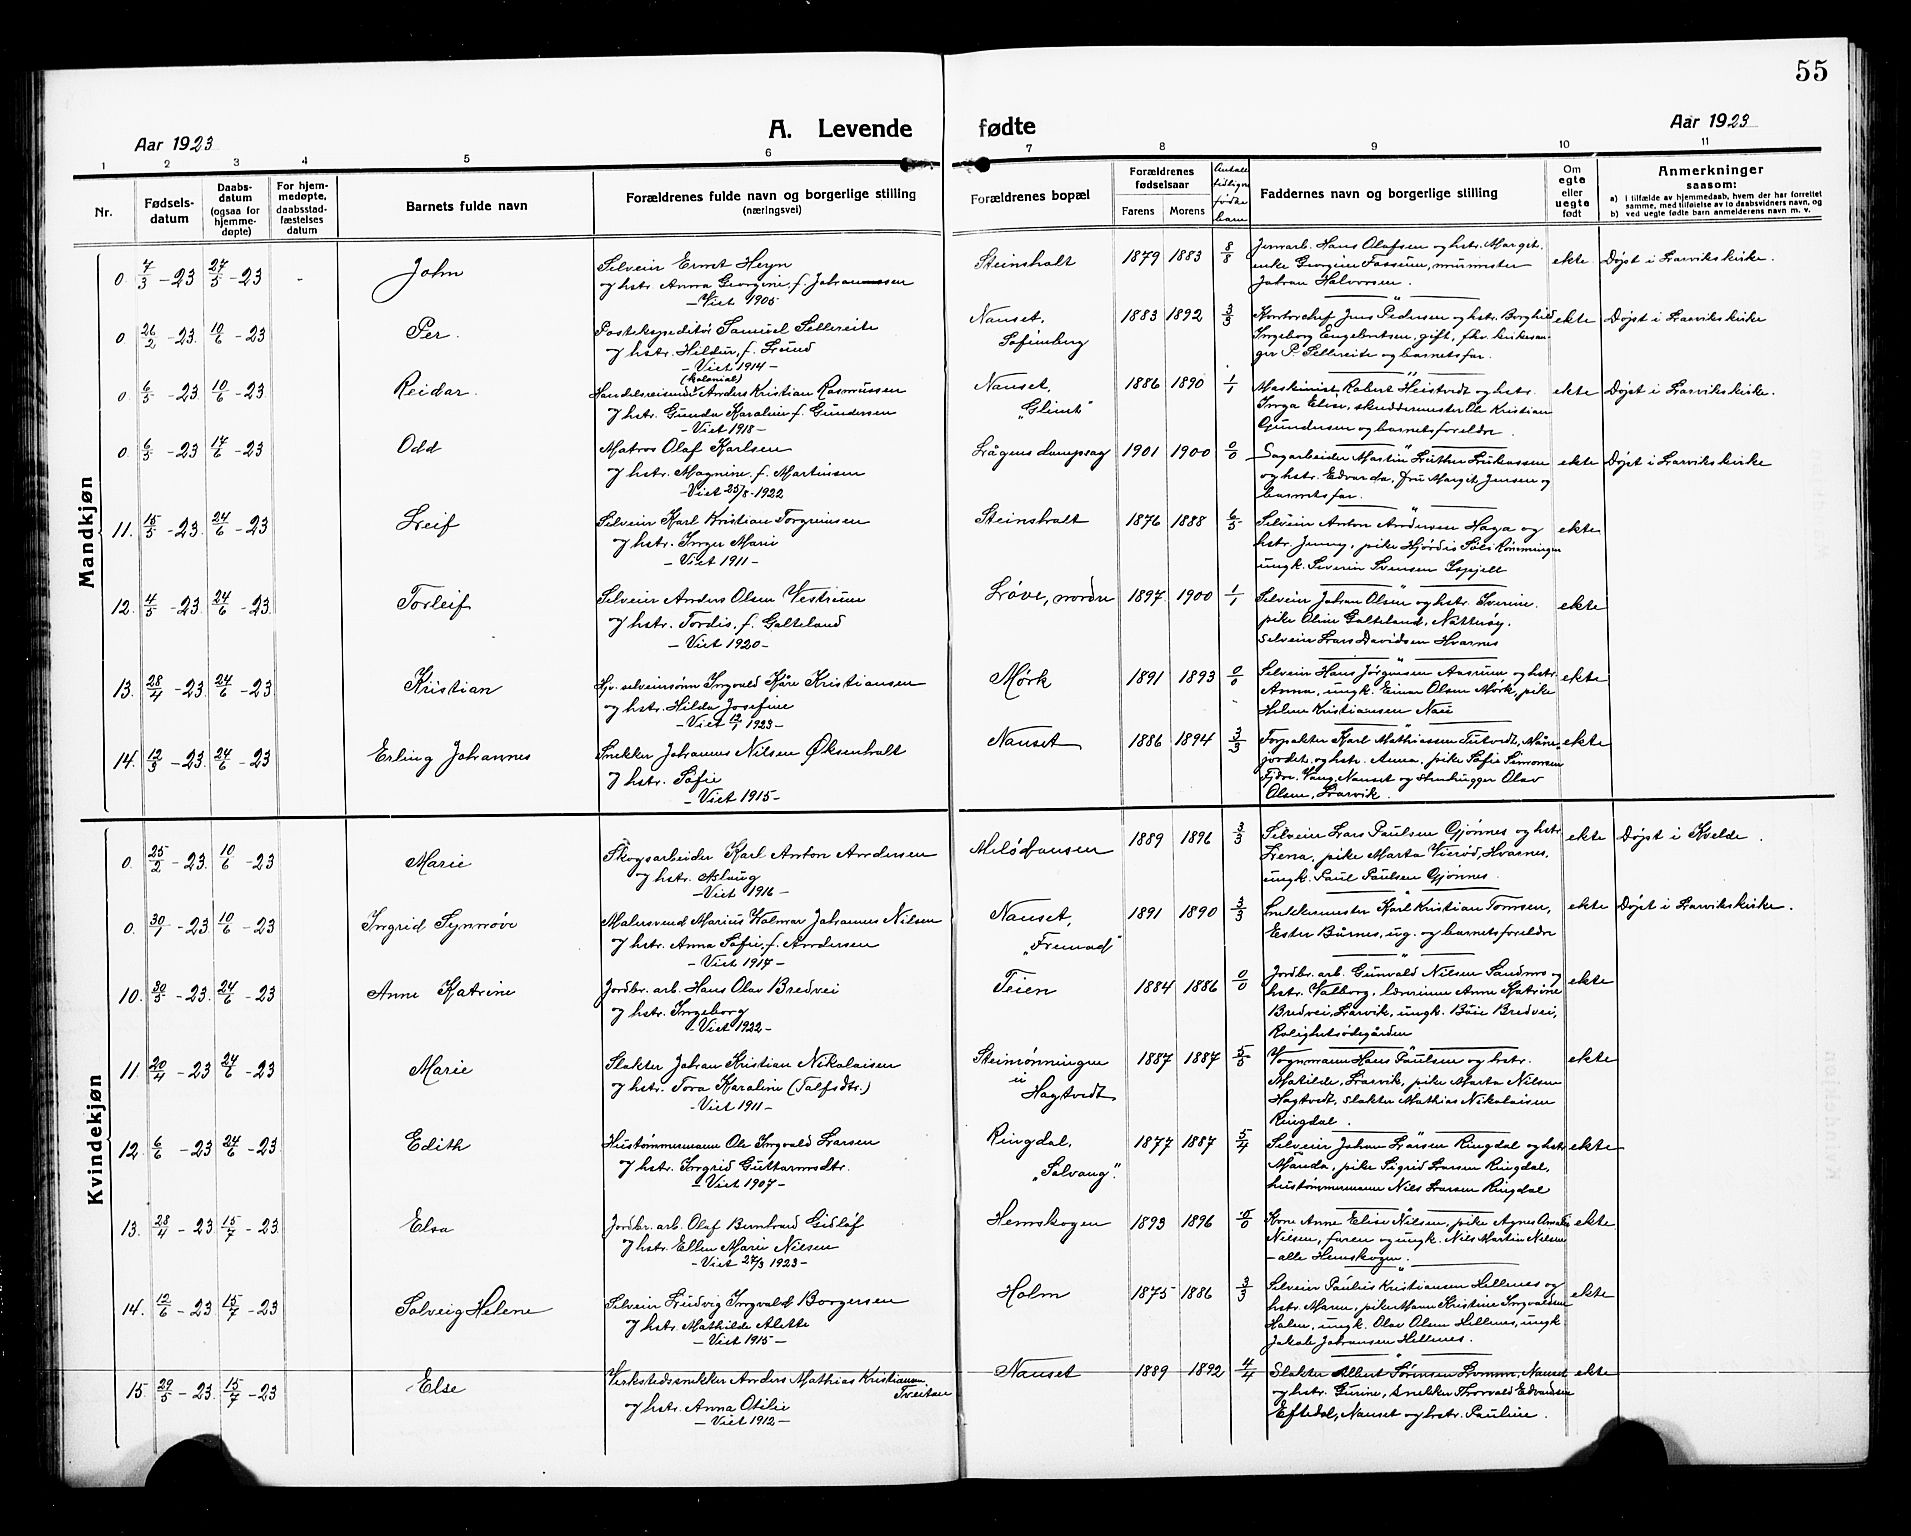 55
Aar 1923
A. Levende fødte
Aar 1923
1 2 3 4 5 6 7 8 9 10 11
Nr.
Fødsels-
datum
Daabs-
datum
(ogsaa for
hjemme-
døpte)
For hjem-
medøpte,
daabsstad-
fæstelses
datum
Barnets fulde navn
Forældrenes fulde navn og borgerlige stilling
(næringsvei)
Forældrenes bopæl
Forældrenes
fødselsaar
Farens Morens
Antall
tidligere
fødte
barn
Faddernes navn og borgerlige stilling
Om
egte
eller
uegte
født
Anmerkninger
saasom:
a) I tilfælde av hjemmedaab, hvem der har forrettet
samme, med tilføielse av to daabsvidners navn, og
b) ved uegte fødte barn anmelderens navn m. v.
Mandkjøn
0. 7/3 - 23 27/5 - 23 - John
Selveier Ernst Heyn
og hstr. Anna Georgine, f. Johannessen
- Viet 1905
Steinsholt 1879 1883 8/8
Jernarb. Hans Olafsen og hstr. Marget,
enke Georgine Fossum, murmester
Johan Halvorsen.
ekte Døpt i Larvikskirke.
0. 26/2 - 23. 10/6 - 23 Per.
Postekspeditør Samuel Sellereite
og hstr. Hildur, f. Lund
- Viet 1914 -
Nanset,
Sofienberg
1883 1892 3/3
Kontorchef Jens Pedersen og hstr. Borghild
Ingeborg Engebretsen, gift, fhv. kirkesan-
ger P. Sellereite og barnets far.
ekte Døpt i Larvikskirke
0. 6/5 - 23. 10/6 - 23 Reidar.
(kolonial)
Handelsreisende Anders Kristian Rasmussen
og hstr. Gunda Karoline f. Gundersen
- Viet 1918 -
Nanset,
"Glimt"
1886 1890 1/1
Maskinist Robert Heistvedt og hstr.
Inga Elise, skreddermester Ole Kristian
Gundersen og barnets foreldre.
ekte Døpt i Larvikskirke.
0. 6/5 - 23 17/6 - 23 Odd
Matros Olaf Karlsen
og hstr. Magnine, f. Martinsen
- Viet 25/8 - 1922
Lågens dampsag 1901 1900 0/0
Sagarbeider Martin Luther Lukassen
og hstr. Edvarda, fru Marget Jensen og
barnets far.
ekte Døpt i Larvikskirke
11. 15/5 - 23. 24/6 - 23 Leif
Selveier Karl Kristian Torgrimsen
og hstr. Inger Marie
- Viet 1911 -
Steinsholt 1876 1888 6/5
Selveier Anton Andersen Haga og
hstr. Jenny, pike Hjørdis Rønningen
ungk. Severin Svensen
ekte
12. 4/5 - 23 24/6 - 23. Torleif
Selveier Anders Olsen Vestrum
og hstr. Tordis, f. Galteland
- Viet 1920 -
Løve, nordre 1897 1900 1/1
Selveier Johan Olsen og hstr. Sverine.
pike Oline Galteland,
selveier Lars Davidsen Hvarnes
ekte
13. 28/4 - 23. 24/6 - 23 Kristian
Hjv. selveiersønn Ingvald Kåre Kristiansen
og hstr. Hilda Josefine
- Viet 12/1 1923 -
Mørk 1891 1893 0/0
Selveier Hans Jørgensen Aasrum og hstr.
Anna, ungk. Einar Olsen Mørk, pike
Helene Kristiansen
ekte
14. 12/3 - 23. 24/6 - 23 Erling Johannes
Snekker Johannes Nilsen Øksenholt
og hstr. Sofie
- Viet 1915 -
Nanset 1886 1894 3/3
Forpakter Karl Mathiassen Tutvedt, Måne-
jordet og hstr. Anna, pike Sofie Simonsen
Fjære, Vang, Nanset og stenhugger Olav
Olsen, Larvik.
ekte
Kvindekjøn
0. 25/2 - 23. 10/6 - 23 Marie
Skogsarbeider Karl Anton Andersen
og hstr. Aslaug
- Viet 1916 -
1889 1896 3/3
Selveier Lars Paulsen Gjønnes og hstr.
Lena, pike Marta Vierød, Hvarnes,
ungk. Paul Paulsen Gjønnes.
ekte Døpt i Kvelde.
0. 30/1 - 23. 10/6 - 23 Ingrid Synnøve
Malersvend Marius Valmar Johannes Nilsen
og hstr. Anna Sofie, f. Andersen
- Viet 1917 -
Nanset,
"Fremad"
1891 1890 3/3
Karl Kristian Tomsen,
Ester Burnes, ug. og barnets foreldre
ekte Døpt i Larvikskirke.
10. 30/5 - 23. 24/6 - 23 Anne Katrine
Jordbr. arb. Hans Olav Bredvei
og hstr. Ingeborg
- Viet 1922 -
Teien 1884 1886 0/0
Jordbr. arb. Gunvald Nilsen Sandmo og
hstr. Valborg, lærerinne Anne Katrine
Bredvei, Larvik, ungk. Bredvei,
Rolighetsødegården
ekte
11. 20/4 - 23 24/6 - 23 Marie
Slakter Johan Kristian Nikolaisen
og hstr. Tora Karoline (Tolfsdtr.)
- Viet 1911 -
Steinrønningen
u
Hagtvedt
1887 1887 5/5
Vognmann Hans Paulsen og hstr.
Matilde, Larvik, pike Marta Nilsen
Hagtvedt, slakter Mathias Nikolaisen
Ringdal.
ekte
12. 6/6 - 23 24/6 - 23 Edith
Hustømmermann Ole Ingvald Larsen
og hstr. Ingrid Guttormsdtr.
- Viet 1907 -
Ringdal,
"Solvang".
1877 1887 5/4
Selveier Johan Larsen Ringdal og hstr.
Manda, pike Sigrid Larsen Ringdal,
hustømmermann Nils Larsen Ringdal
ekte
13. 28/4 - 23 15/7 - 23 Elsa
Jordbr. arb. Olaf Berntvard Gidløf
og hstr. Ellen Marie Nilsen
- Viet 27/3 1923 -
Hemskogen 1893 1896 0/0
Kone Anne Elise Nilsen, pike Agnes Amalie
Nilsen, faren og ungk. Nils Martin Nilsen
- alle Hemskogen.
ekte
14. 12/6 - 23 15/7 - 23 Solveig Helene
Selveier Ludvig Ingvald Borgersen
og hstr. Mathilde Alette
- Viet 1915 -
Holm 1875 1886 3/3
Selveier Paulus Kristiansen Hellenes og
hstr. Maren, pike Maren Kristine Ingvaldsen
Holm, ungk. Olav Olsen Hellenes, ungk.
Jakob Johansen Hellenes.
ekte
15. 29/5 - 23 15/7 - 23 Else
Verkstedssnekker Anders Mathias Kristiansen
Tveiten
og hstr. Anna Otilie
- Viet 1912 -
Nanset 1889 1892 4/4
Slakter Albert Sørensen Nanset
og hstr. Gurine, snekker Thorvald Edvardsen
Eftedal, Nanset og hstr. Pauline.
ekte